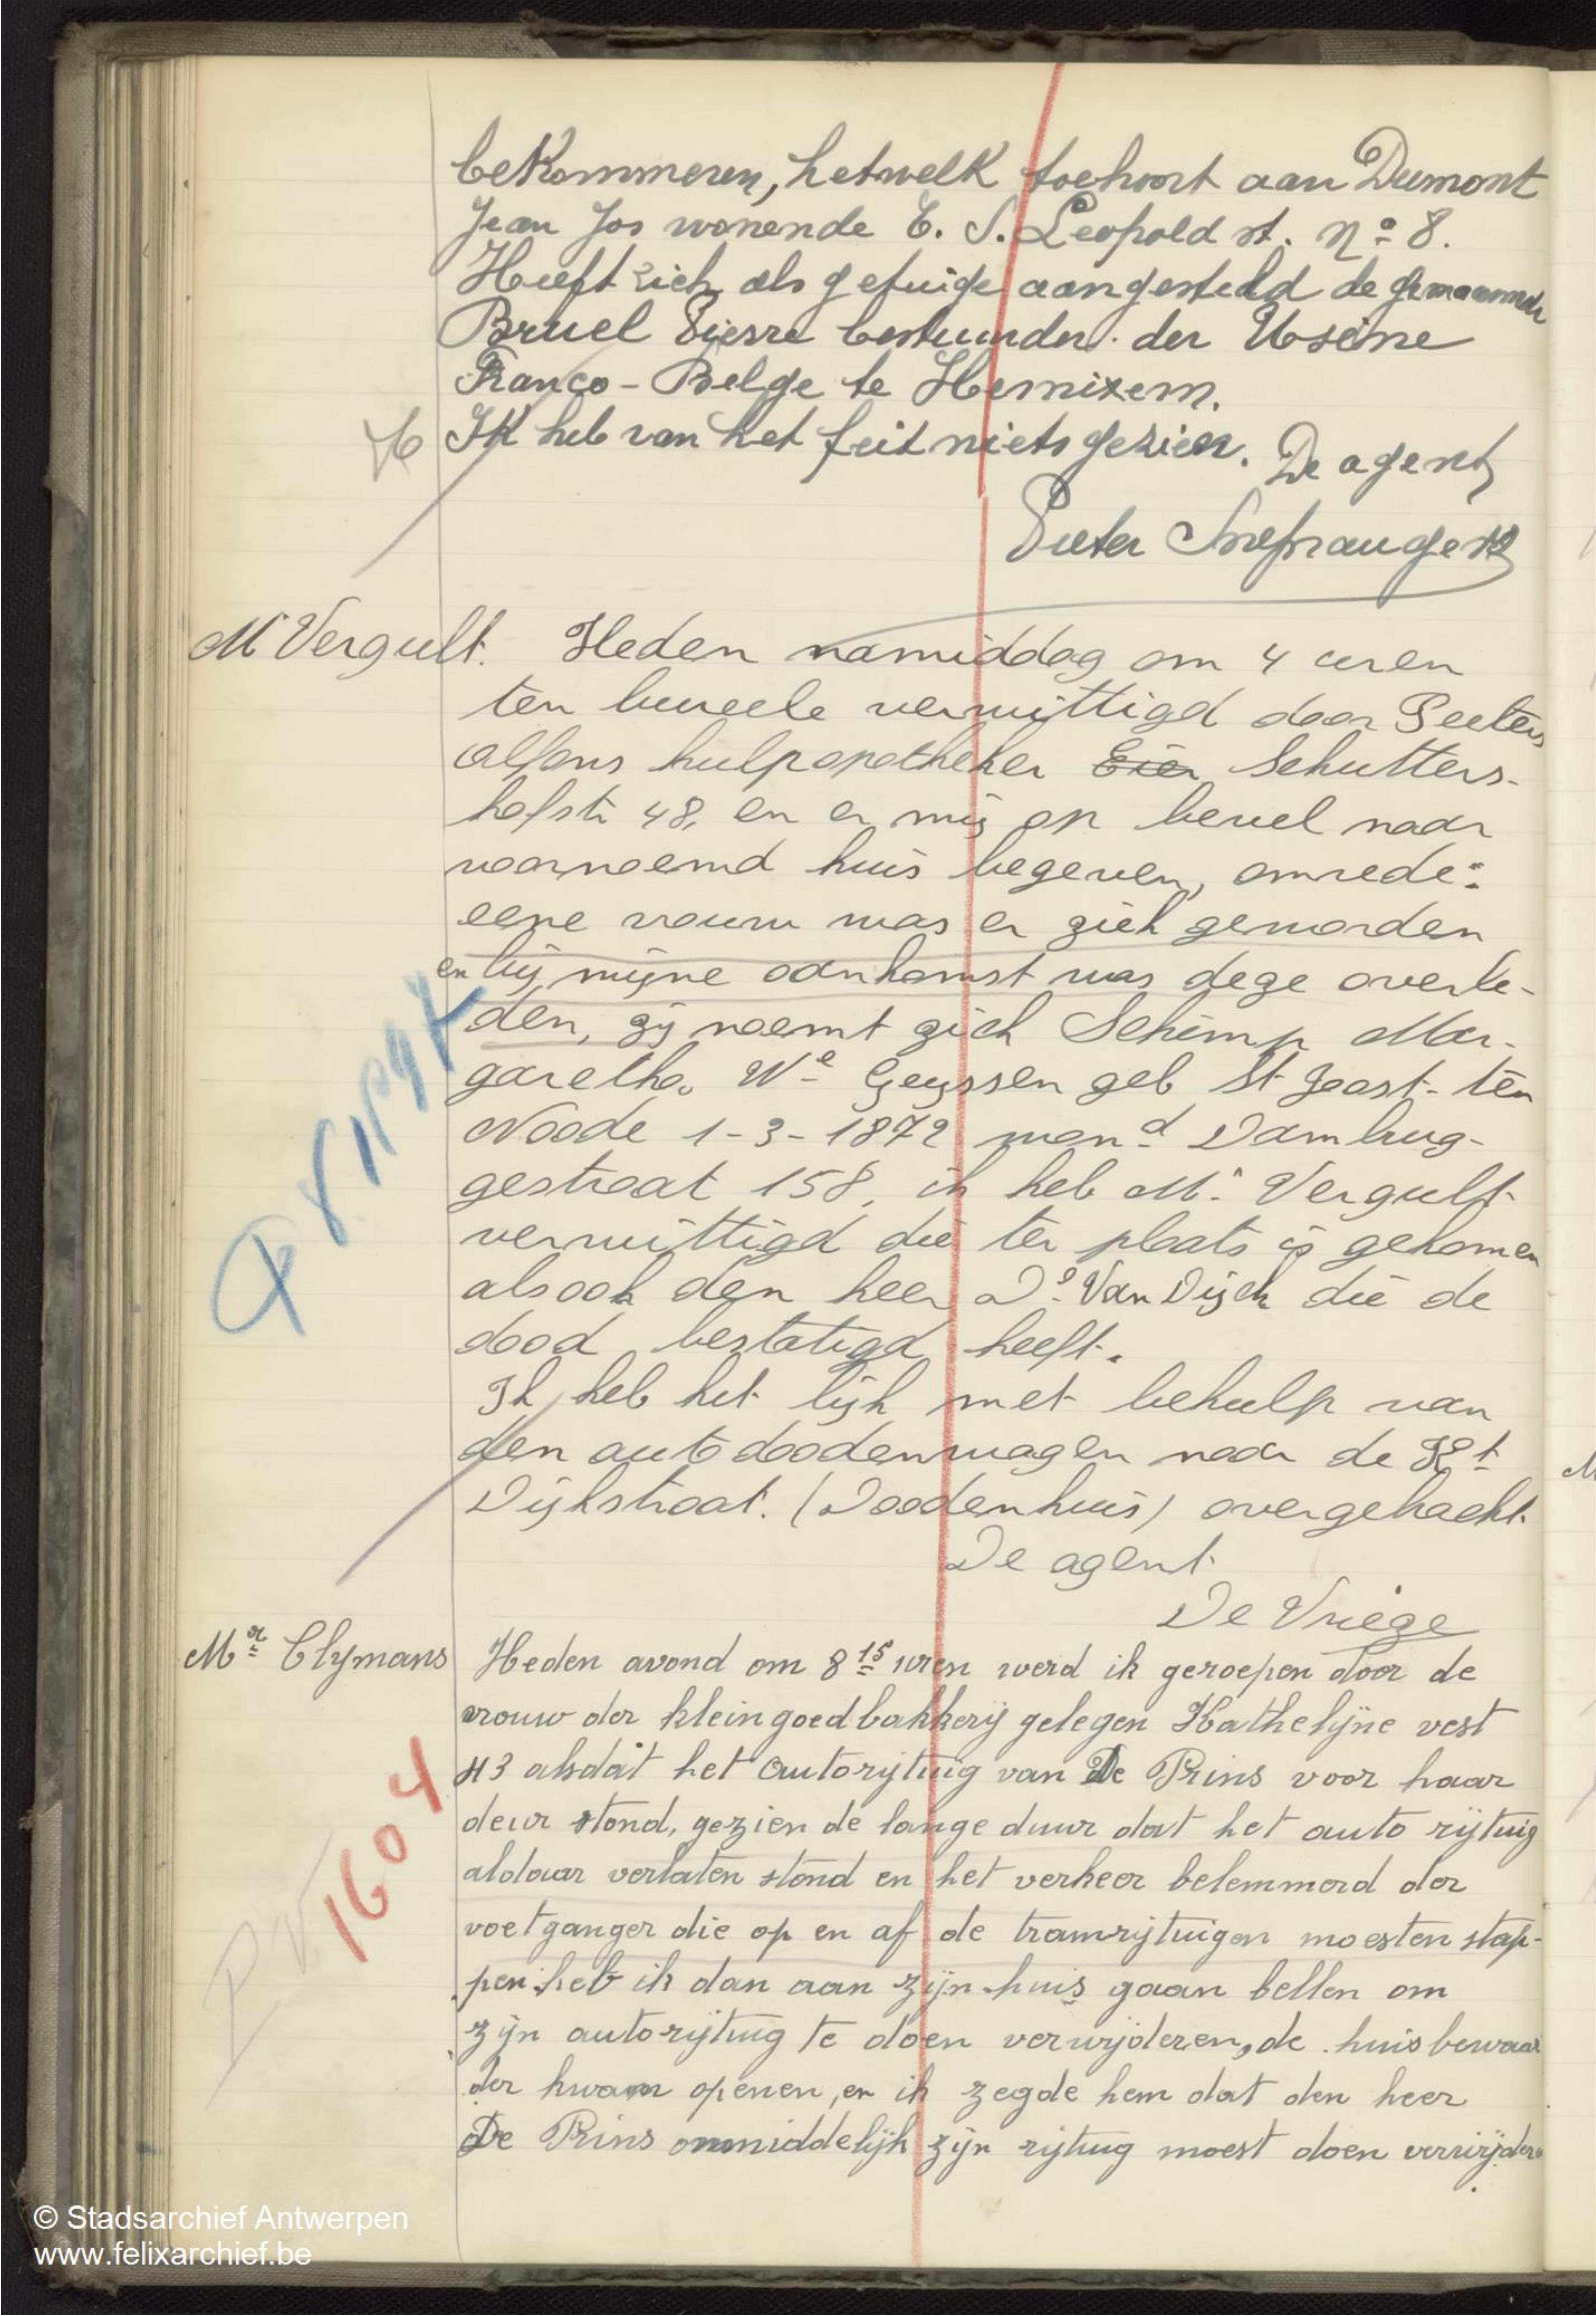 bekommeren, hetwelk toehoort aan Dumont
Jean Jos wonende E. S. Leopold st. Nº 8.
Heeft zich als getuige aangesteld de genaamde
Bruel Pierre bestuurder der Usine
Franco-Belge te Hemixem.
Ik heb van het feit niets gezien. De agent
Pieter
M Vergult. Heden namiddag om 4 uren
ten bureele verwittigd door Peeters
Alfons hulpapotheker Eier Schutters-
hofstr 48, en er mij op bevel naar
voornoemd huis begeven, omrede:
eene vrouw was er ziek geworden
en bij mijne aankomst was deze overle-
den, zij noemt zich Schimp Mar-
garetha We Geyssen geb St Joost-ten
Noode 1-3-1872 wond Dambrug-
gestraat 158, ik heb Mr Vergult
verwittigd die ter plaats is gekomen
alsook den heer Dr Van Dijck die de
dood bestatigd heeft.
Ik heb het lijk met behulp van
den auto doodenwagen naar de
Dijkstraat. (Doodenhuis) overgebracht.
De agent
De Vrieze
Mr Clymans Heden avond om 8 15 uren werd ik geroepen door de
vrouw der kleingoedbakkerij gelegen Kathelijne vest
43 alsdat het autorijtuig van De Prins voor haar
deur stond, gezien de lange duur dat het auto rijtuig
aldaar verlaten stond en het verkeer belemmerd der
voetganger die op en af de tramrijtuigen moesten stap-
pen heb ik dan aan zijn huis gaan bellen om
zijn autorijtuig te doen verwijderen, de huisbewaar
der kwam openen, en ik zegde hem dat den heer
De Prins onmiddelijk zijn rijtuig moest doen verwijderen
1604
PV
© Stadsarchief Antwerpen
www.felixarchief.be